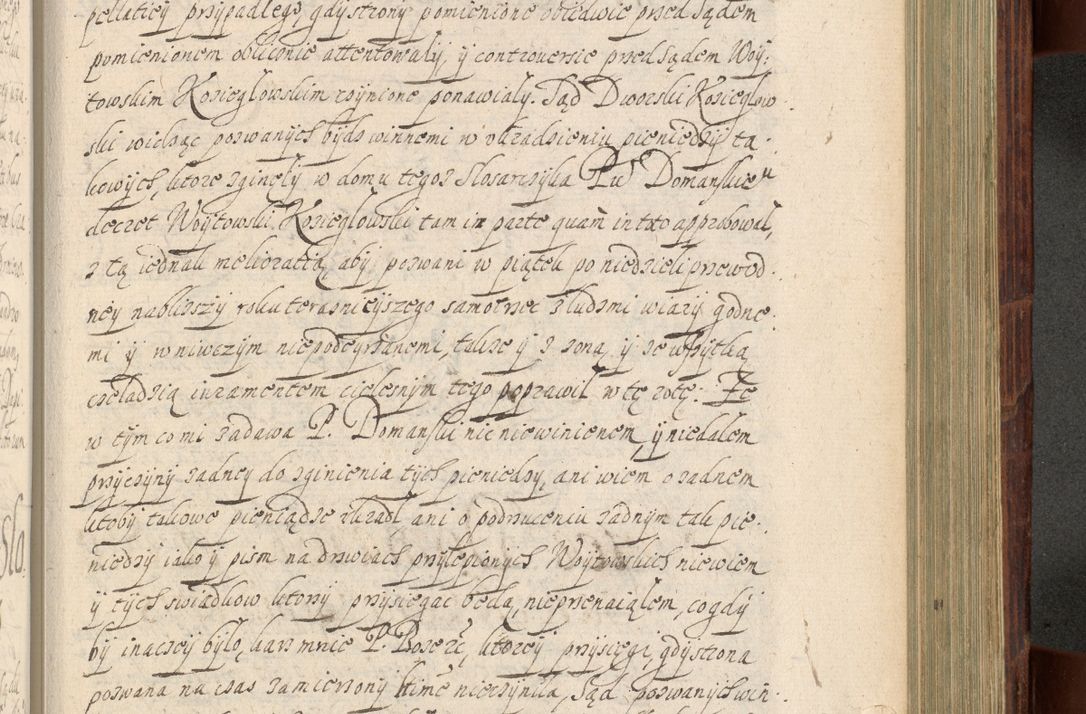 pellatiey przypadłego, gdy strony pomienione obiedwie przed Sądem
pomienionem oblicznie attentowały, ÿ controuersie przed Sądem Woÿ:
towskim Kozieglowskim roznione ponawiały. Sąd Dworski Kozieglow:
ski widząc pozwanych bÿdz winnemi w vkradzieniu pieniędzÿ ta:
kowÿch, ktore zginęłÿ w domu tegoz Slosarczyka Pu Domanskieu
decret Woÿtowski Kozieglowski tam in parte quam in toto approbował,
z tą iednak melioratią, aby pozwani w piątek po niedzieli przewod:
neÿ nablizszÿ roku terazniejszego samotrzec z ludzmi wiary godne:
mi ÿ w niwczym niepodeyrzanemi, takze ÿ z zoną, ÿ ze wszytką
czeladzią iuramentem cielesnÿm tego poprawił w tę rotę: Ze
w tÿm co mi zadawa P. Domanski nic niewinienem, ÿ niedalem
przÿczÿnÿ zadneÿ do zginienia tÿch pieniedzy, ani wiem o zadnem
ktobÿ takowe pieniądze vkradł ani o podrzuceniu zadnÿm tak pie:
niedzÿ iako ÿ pism na drzwiach przÿlepionÿch Woÿtowskich niewiem
ÿ tÿch swiadkow ktorzÿ przÿsiegac beda, nieprzenaiąłem, co gdÿ
bÿ inaczeÿ bÿlo, karz mnie P. Boze etc, ktoreÿ przÿsięgi, gdÿ strona
pozwana na czas zamierzony hime nieczÿniła, Sąd pozwanÿch win: